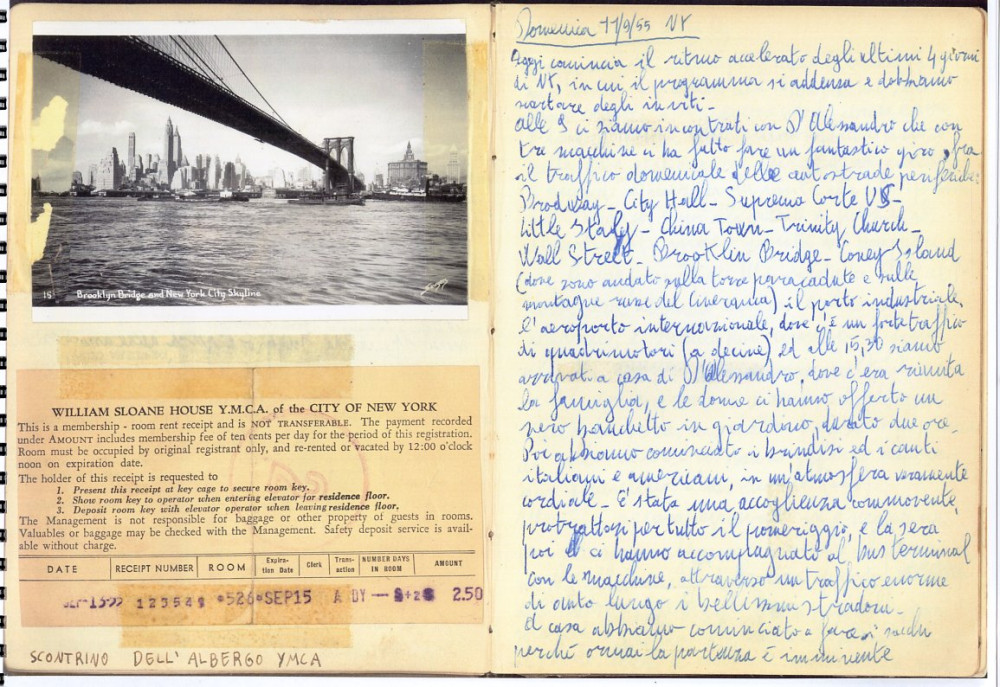 15 Brooklyn Bridge and New York City Skyline
WILLIAM SLOANE HOUSE Y.M.C.A. of the CITY OF NEW YORK
This is a membership - room rent receipt and is NOT TRANSFERABLE. The payment recorded
under AMOUNT includes membership fee of ten cents per day for the period of this registration.
Room must be occupied by original registrant only, and re-rented or vacated by 12:00 o'clock
noon on expiration date.
The holder of this receipt is requested to
1. Present this receipt at key cage to secure room key.
2. Show room key to operator when entering elevator for residence floor.
3. Deposit room key with elevator operator when leaving residence floor.
The Management is not responsible for baggage or other property of guests in rooms.
Valuables or baggage may be checked with the Management. Safety deposit service is avail-
able without charge.
DATE RECEIPT NUMBER ROOM Expira- tion Date Clerk Trans- action NUMBER DAYS IN ROOM AMOUNT
526 SEP15 A DY 2.50
SCONTRINO DELL'ALBERGO YMCA
Domenica 11/9/55 NY
Oggi comincia il ritmo accelerato degli ultimi 4 giorni
di NY, in cui il programma si addensa e dobbiamo
scartare degli inviti -
Alle 9 ci siamo incontrati con D'Alessandro che con
tre macchine ci ha fatto fare un fantastico giro, fra
il traffico domenicale delle autostrade periferiche:
Brodway - City Hall - Suprema Corte US -
Little Italy - China Town - Trinity Church -
Wall Street - Brooklin Bridge - Coney Island
(dove sono andato sulla torre paracadute e sulle
montagne russe del Cinerama) il porto industriale,
l'aeroporto internazionale, dove c'è un forte traffico
di quadrimotori (a decine) ed alle 15,30 siamo
arrivati a casa di D'Alessandro, dove c'era riunita
la famiglia, e le donne ci hanno offerto un
vero banchetto in giardino, durato due ore -
Poi abbiamo cominciato i brindisi ed i canti
italiani e americani, in un'atmosfera veramente
cordiale - E' stata una accoglienza commovente,
protrattasi per tutto il pomeriggio, e la sera
poi ci hanno accompagnato al bus terminal
con le macchine, attraverso un traffico enorme
di auto lungo i bellissimi stradoni -
A casa abbiamo cominciato a fare i sacchi
perché ormai la partenza è imminente